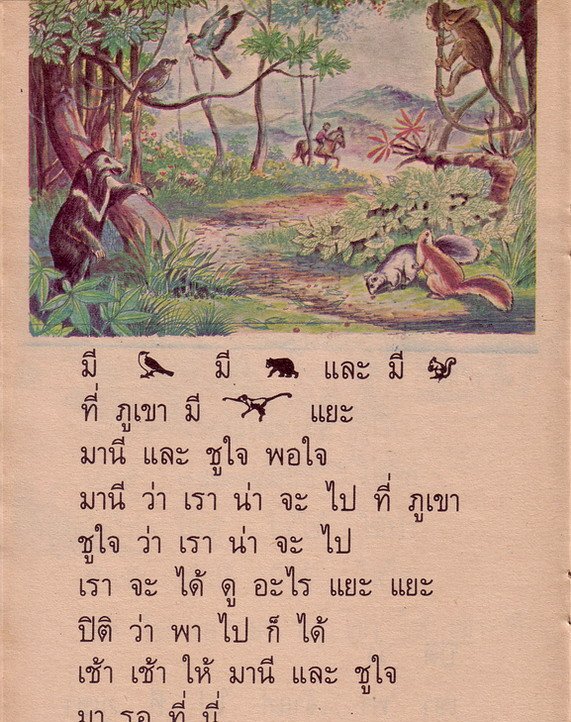 มี มี และ มี
ที่ ภูเขา มี แยะ
มานี และ ชูใจ พอใจ
มานี ว่า เรา น่า จะ ไป ที่ ภูเขา
ชูใจ ว่า เรา น่า จะ ไป
เรา จะ ได้ ดู อะไร แยะ แยะ
ปิติ ว่า พา ไป ก็ ได้
เช้า เช้า ให้ มานี และ ชูใจ
มา รอ ที่ นี่